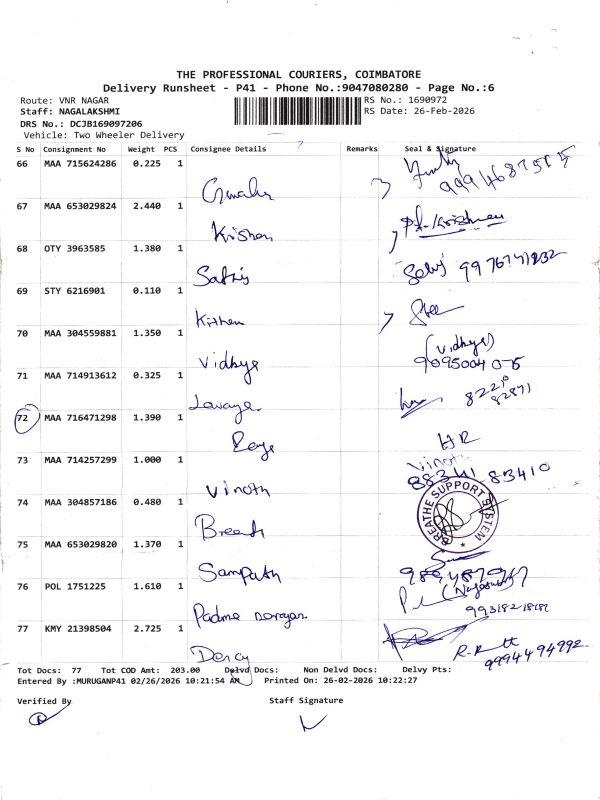 THE PROFESSIONAL COURIERS, COIMBATORE
Delivery Runsheet - P41 - Phone No.:9047080280 - Page No.:6
Route: VNR NAGAR
RS No.: 1690972
Staff: NAGALAKSHMI
RS Date: 26-Feb-2026
DRS No.: DCJB169097206
Vehicle: Two Wheeler Delivery
S No Consignment No Weight PCS Consignee Details Remarks Seal & Signature
66 MAA 715624286 0.225 1
67 MAA 653029824 2.440 1
Krishan
68 OTY 3963585 1.380 1
Selvj
69 STY 6216901 0.110 1
70 MAA 304559881 1.350 1
(Vidhya)
Vidhya
71 MAA 714913612 0.325 1
Lavanya
72 MAA 716471298 1.390 1
HR
73 MAA 714257299 1.000 1
Vinoth
88341 83410
Vinoth
74 MAA 304857186 0.480 1
BREATHE SUPPORT SYSTEM
75 MAA 653029820 1.370 1
Sampath
76 POL 1751225 1.610 1
77 KMY 21398504 2.725 1
99944 94992
Tot Docs: 77 Tot COD Amt: 203.00 Delvd Docs: Non Delvd Docs: Delvy Pts:
Entered By :MURUGANP41 02/26/2026 10:21:54 AM Printed On: 26-02-2026 10:22:27
Verified By Staff Signature